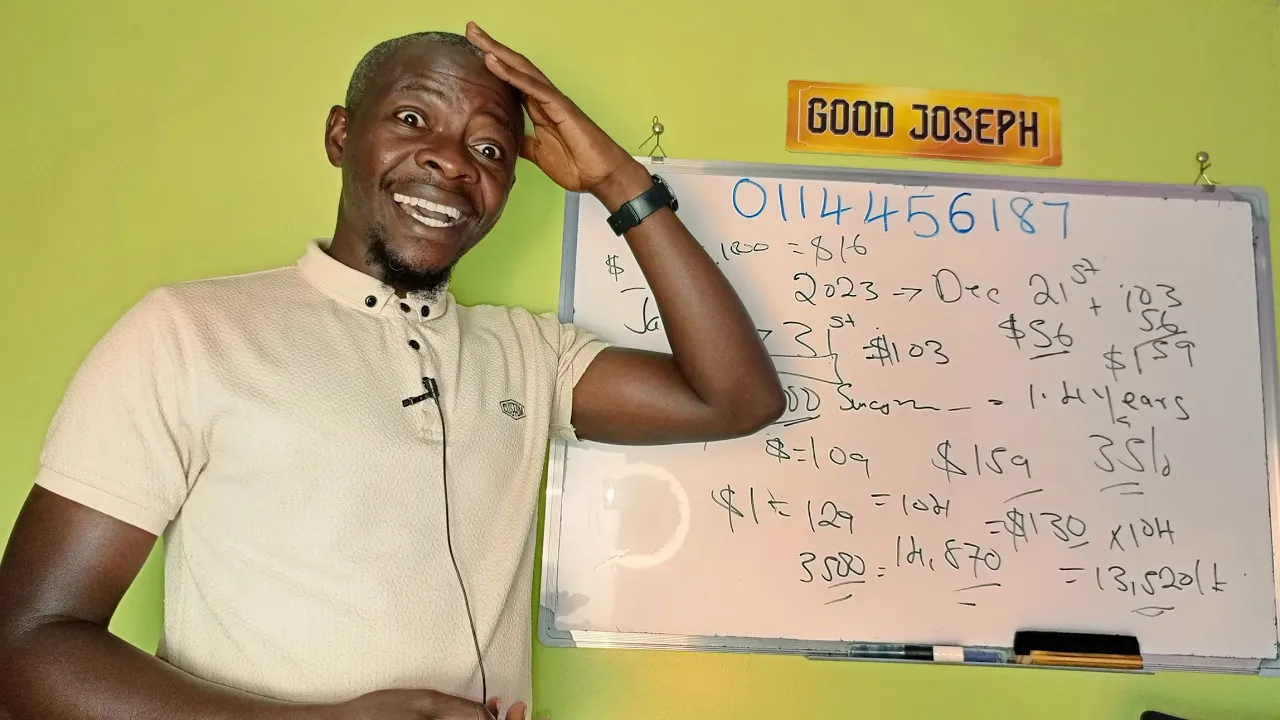 GOOD JOSEPH
0114456187
$ 1800 = $16
2023 → Dec 21st + 103
56
$159
$56
Ja 31st $103
00 = 1.4 years
$=109 $159 35%
$1 = 129 = 104 = $130 x104
3500 = 14,870 = 13,520/=
CUSTOM